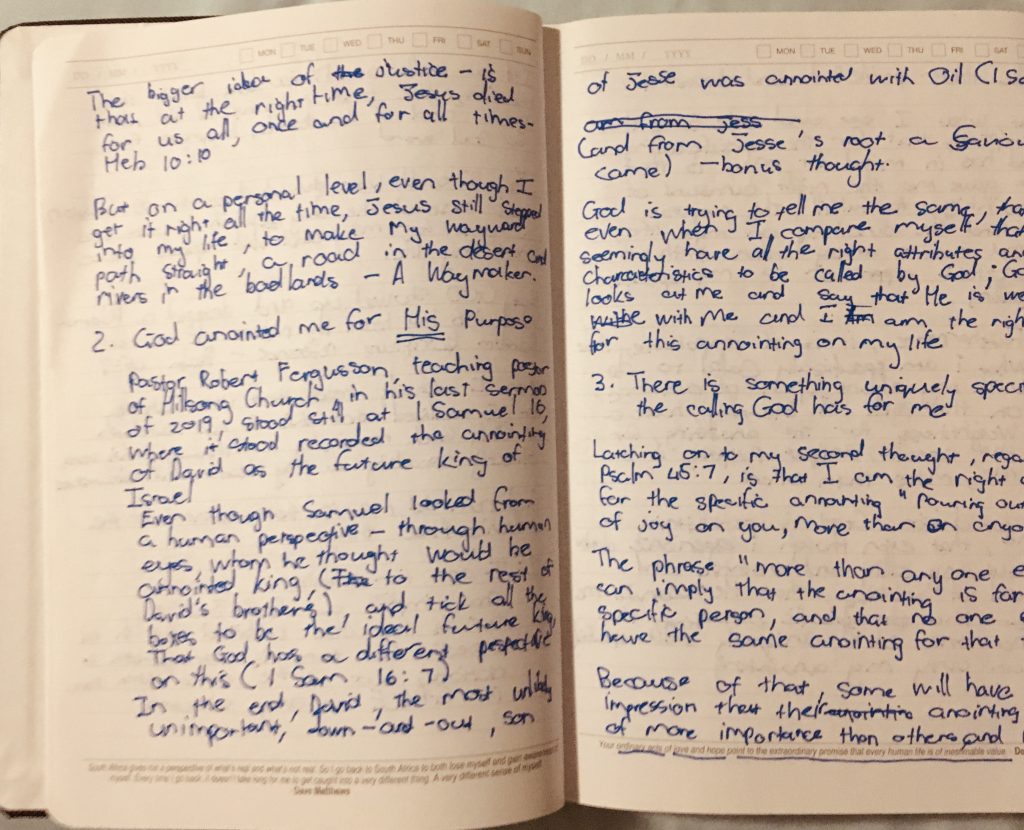 MON TUE WED THU FRI SAT SUN
DD / MM / YYYY
The bigger idea of the Justice – is
that at the right time, Jesus died
for us all, once and for all times-
Heb 10:10
But on a personal level, even though I
get it right all the time, Jesus still stepped
into my life, to make my wayward
path straight, a road in the desert and
rivers in the badlands – A Waymaker.
2. God anointed me for His Purpose
Pastor Robert Fergusson, teaching pastor
of Hillsong Church, in his last sermon
of 2019, stood still at 1 Samuel 16,
where it stood recorded the annointing
of David as the future king of
Israel
Even though Samuel looked from
a human perspective – through human
eyes, whom he thought would be
annointed king, (The to the rest of
David's brothers), and tick all the
boxes to be the ideal future king,
That God has a different perspective
on this (1 Sam 16:7)
In the end, David, the most unlikely
unimportant, down-and-out, son
South Africa gives me a perspective of what's real and what's not real. So I go back to South Africa to both lose myself and gain awareness of
myself. Every time I go back, it doesn't take long for me to get caught into a very different thing. A very different sense of myself.
Dave Matthews
DD / MM / YYYY
MON TUE WED THU FRI SAT
of Jesse was annointed with Oil (1 Sa
am from jess
(and from Jesse's root a Saviou
came) – bonus thought.
God is trying to tell me the same, tha
even when I compare myself that
seemingly have all the right attributes an
characteristics to be called by God; Go
looks at me and say that He is we
with me and I am the righ
for this annointing on my life
3. There is something uniquely speci
the calling God has for me
Latching on to my second thought, rega
Psalm 45:7, is that I am the right
for the specific annointing "Pouring ou
of joy on you, more than on anyo
The phrase "more than any one e
can imply that the anointing is for
specific person, and that no one
have the same anointing for that
Because of that, some will have
impression that their anointin anointing
of more importance than others and
Your ordinary acts of love and hope point to the extraordinary promise that every human life is of inestimable value De